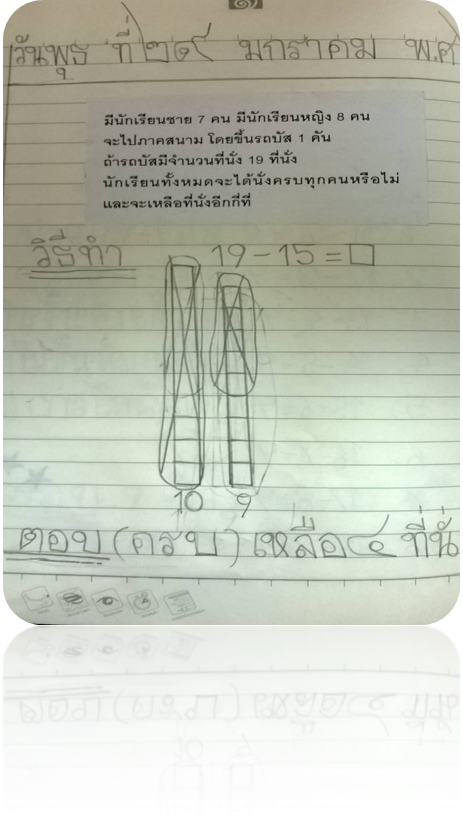 ๑
วันพุธ ที่ ๒๙ มกราคม พ.ศ
มีนักเรียนชาย 7 คน มีนักเรียนหญิง 8 คน
จะไปภาคสนาม โดยขึ้นรถบัส 1 คัน
ถ้ารถบัสมีจำนวนที่นั่ง 19 ที่นั่ง
นักเรียนทั้งหมดจะได้นั่งครบทุกคนหรือไม่
และจะเหลือที่นั่งอีกกี่ที่
วิธีทำ 19 - 15 = □
10 9
ตอบ (ครบ) เหลือ ๔ ที่นั่